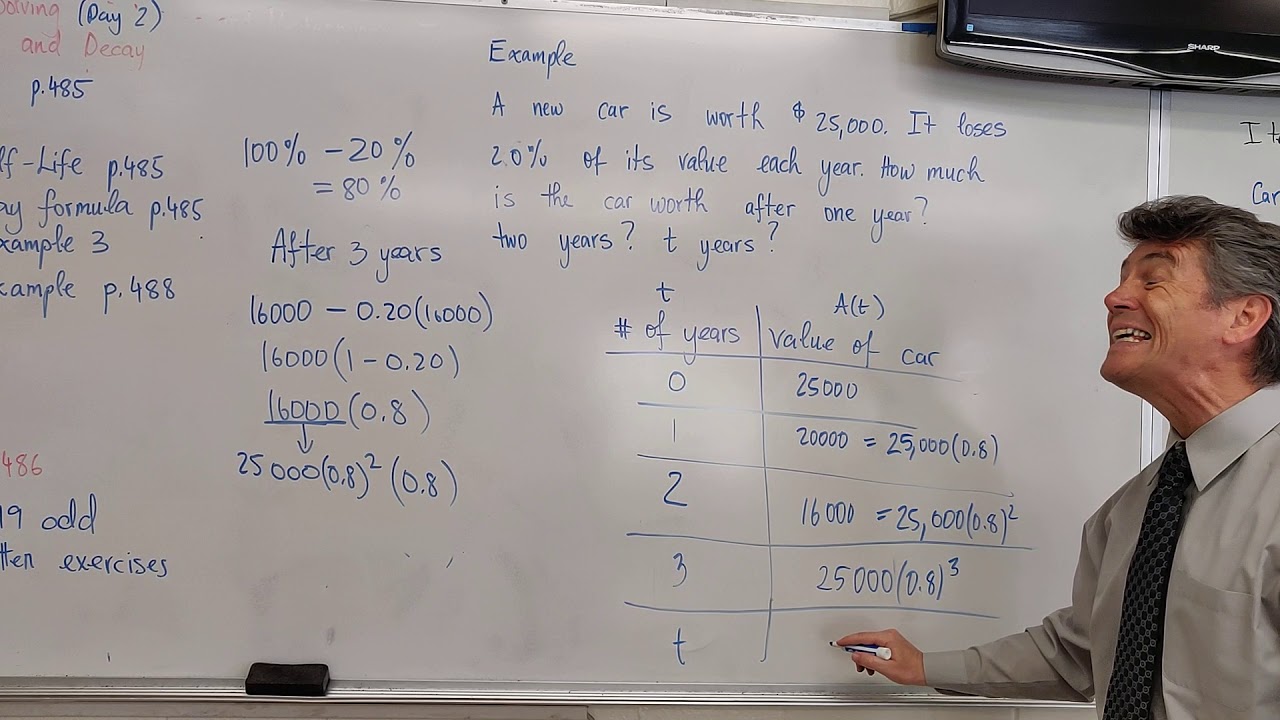 (Day 2)
and Decay
p.485
p.485
formula p.485
3
p.488
486
19 odd
exercises
100% - 20%
= 80%
After 3 years
16000 - 0.20(16000)
16000(1 - 0.20)
16000(0.8)
25000(0.8)² (0.8)
Example
A new car is worth $25,000. It loses
20% of its value each year. How much
is the car worth after one year?
two years? t years?
t A(t)
# of years value of car
0 25000
1 20000 = 25,000(0.8)
2 16000 = 25,000(0.8)²
3 25000(0.8)³
t
SHARP
I
Car